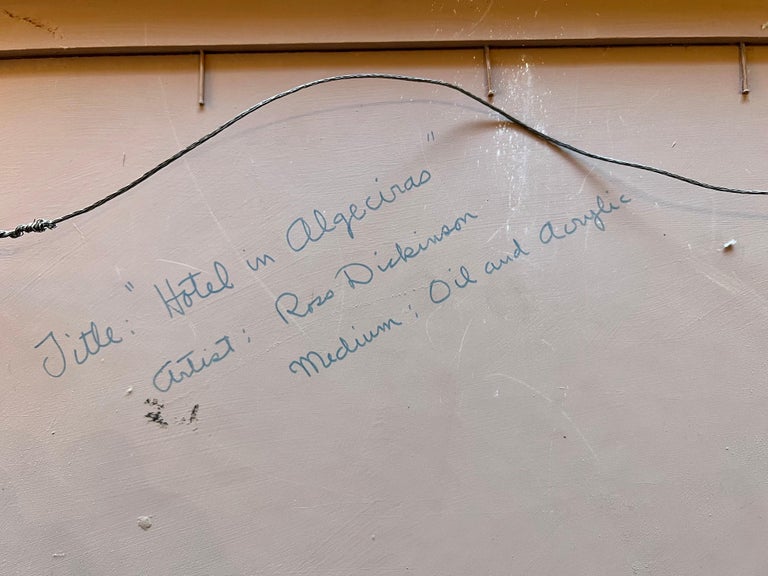 Title: "Hotel in Algeciras"
Artist: Ross Dickinson
Medium: Oil and Acrylic